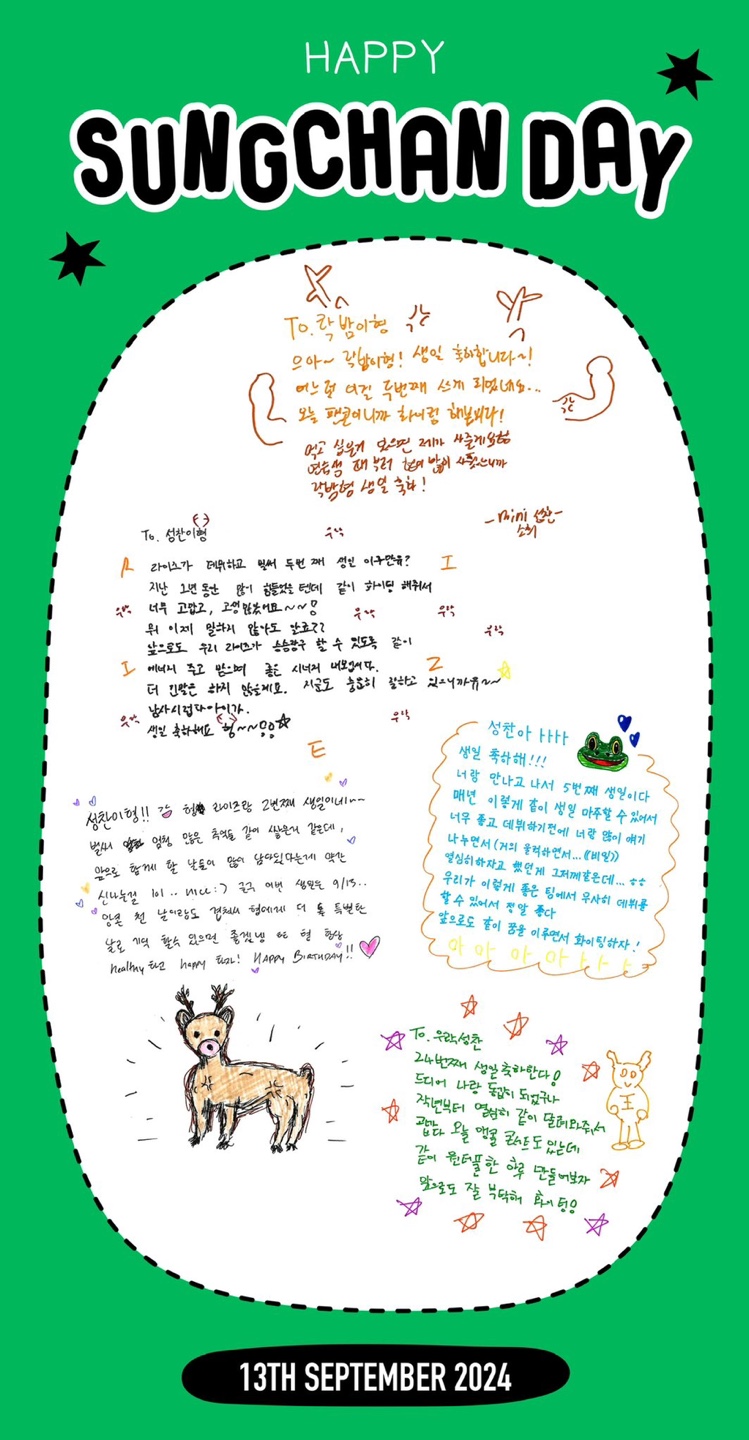 HAPPY
SUNGCHAN DAY
To. 락밤이형
으아~ 락밤이형! 생일 축하합니다~!
어느덧 이걸 두번째 쓰게 되었네요...
오늘 팬콘이니까 화이팅 해봅시다!
먹고 싶은게 있으면 제가 사줄게요형
연습생 때 부터 형이 많이 사줬으니까
락밤형 생일 축하!
-mini 성찬-
소희
To. 성찬이형
우락
R 라이즈가 데뷔하고 벌써 두번 째 생일 이구만유? I
지난 1년 동안 많이 힘들었을 텐데 같이 화이팅 해줘서
우락 너무 고맙고, 고생 많았어요~~! 우락 우락
뭐 이제 말하지 않아도 알죠?? 우락
앞으로도 우리 라이즈가 승승장구 할 수 있도록 같이
I 에너지 주고 받으며 좋은 시너지 내보입시다. Z
더 긴말은 하지 않을게요. 지금도 충분히 잘하고 있으니까유~~
남사시럽다아이가.
우락 생일 축하해요 형~~!! 우락
E
성찬아 ㅏㅏㅏㅏ
생일 축하해!!!
너랑 만나고 나서 5번째 생일이다
매년 이렇게 같이 생일 마주할 수 있어서
너무 좋고 데뷔하기전에 너랑 많이 얘기
나누면서 (거의 울려하면서...((비밀))
열심히하자고 했던게 그저께같은데... ㅎㅎ
우리가 이렇게 좋은 팀에서 무사히 데뷔를
할 수 있어서 정말 좋다
앞으로도 같이 꿈을 이루면서 화이팅하자!
아 아 아 아 ㅏ ㅏ ㅏ
성찬이형!! 형 라이즈랑 2번째 생일이네!~~
벌써 엄청 많은 추억들 같이 쌓은거 같은데,
앞으로 함께 할 날들이 많이 남아있다는게 약간
신나는걸 lol .. nice :) 글구 이번 생일은 9/13..
앙콘 첫 날이랑도 겹쳐서 형에게 더 특별한
날로 기억 할수 있으면 좋겠넹 형 항상
healthy 하고 happy 하자! HAPPY BIRTHDAY!!
To. 우락성찬
24번째 생일 축하한다!
드디어 나랑 동갑이 되었구나
작년부터 열심히 같이 달려와주어서
고맙다 오늘 앵콜 콘서트도 있는데
같이 원더풀한 하루 만들어보자
앞으로도 잘 부탁해 화이팅!
王
13TH SEPTEMBER 2024